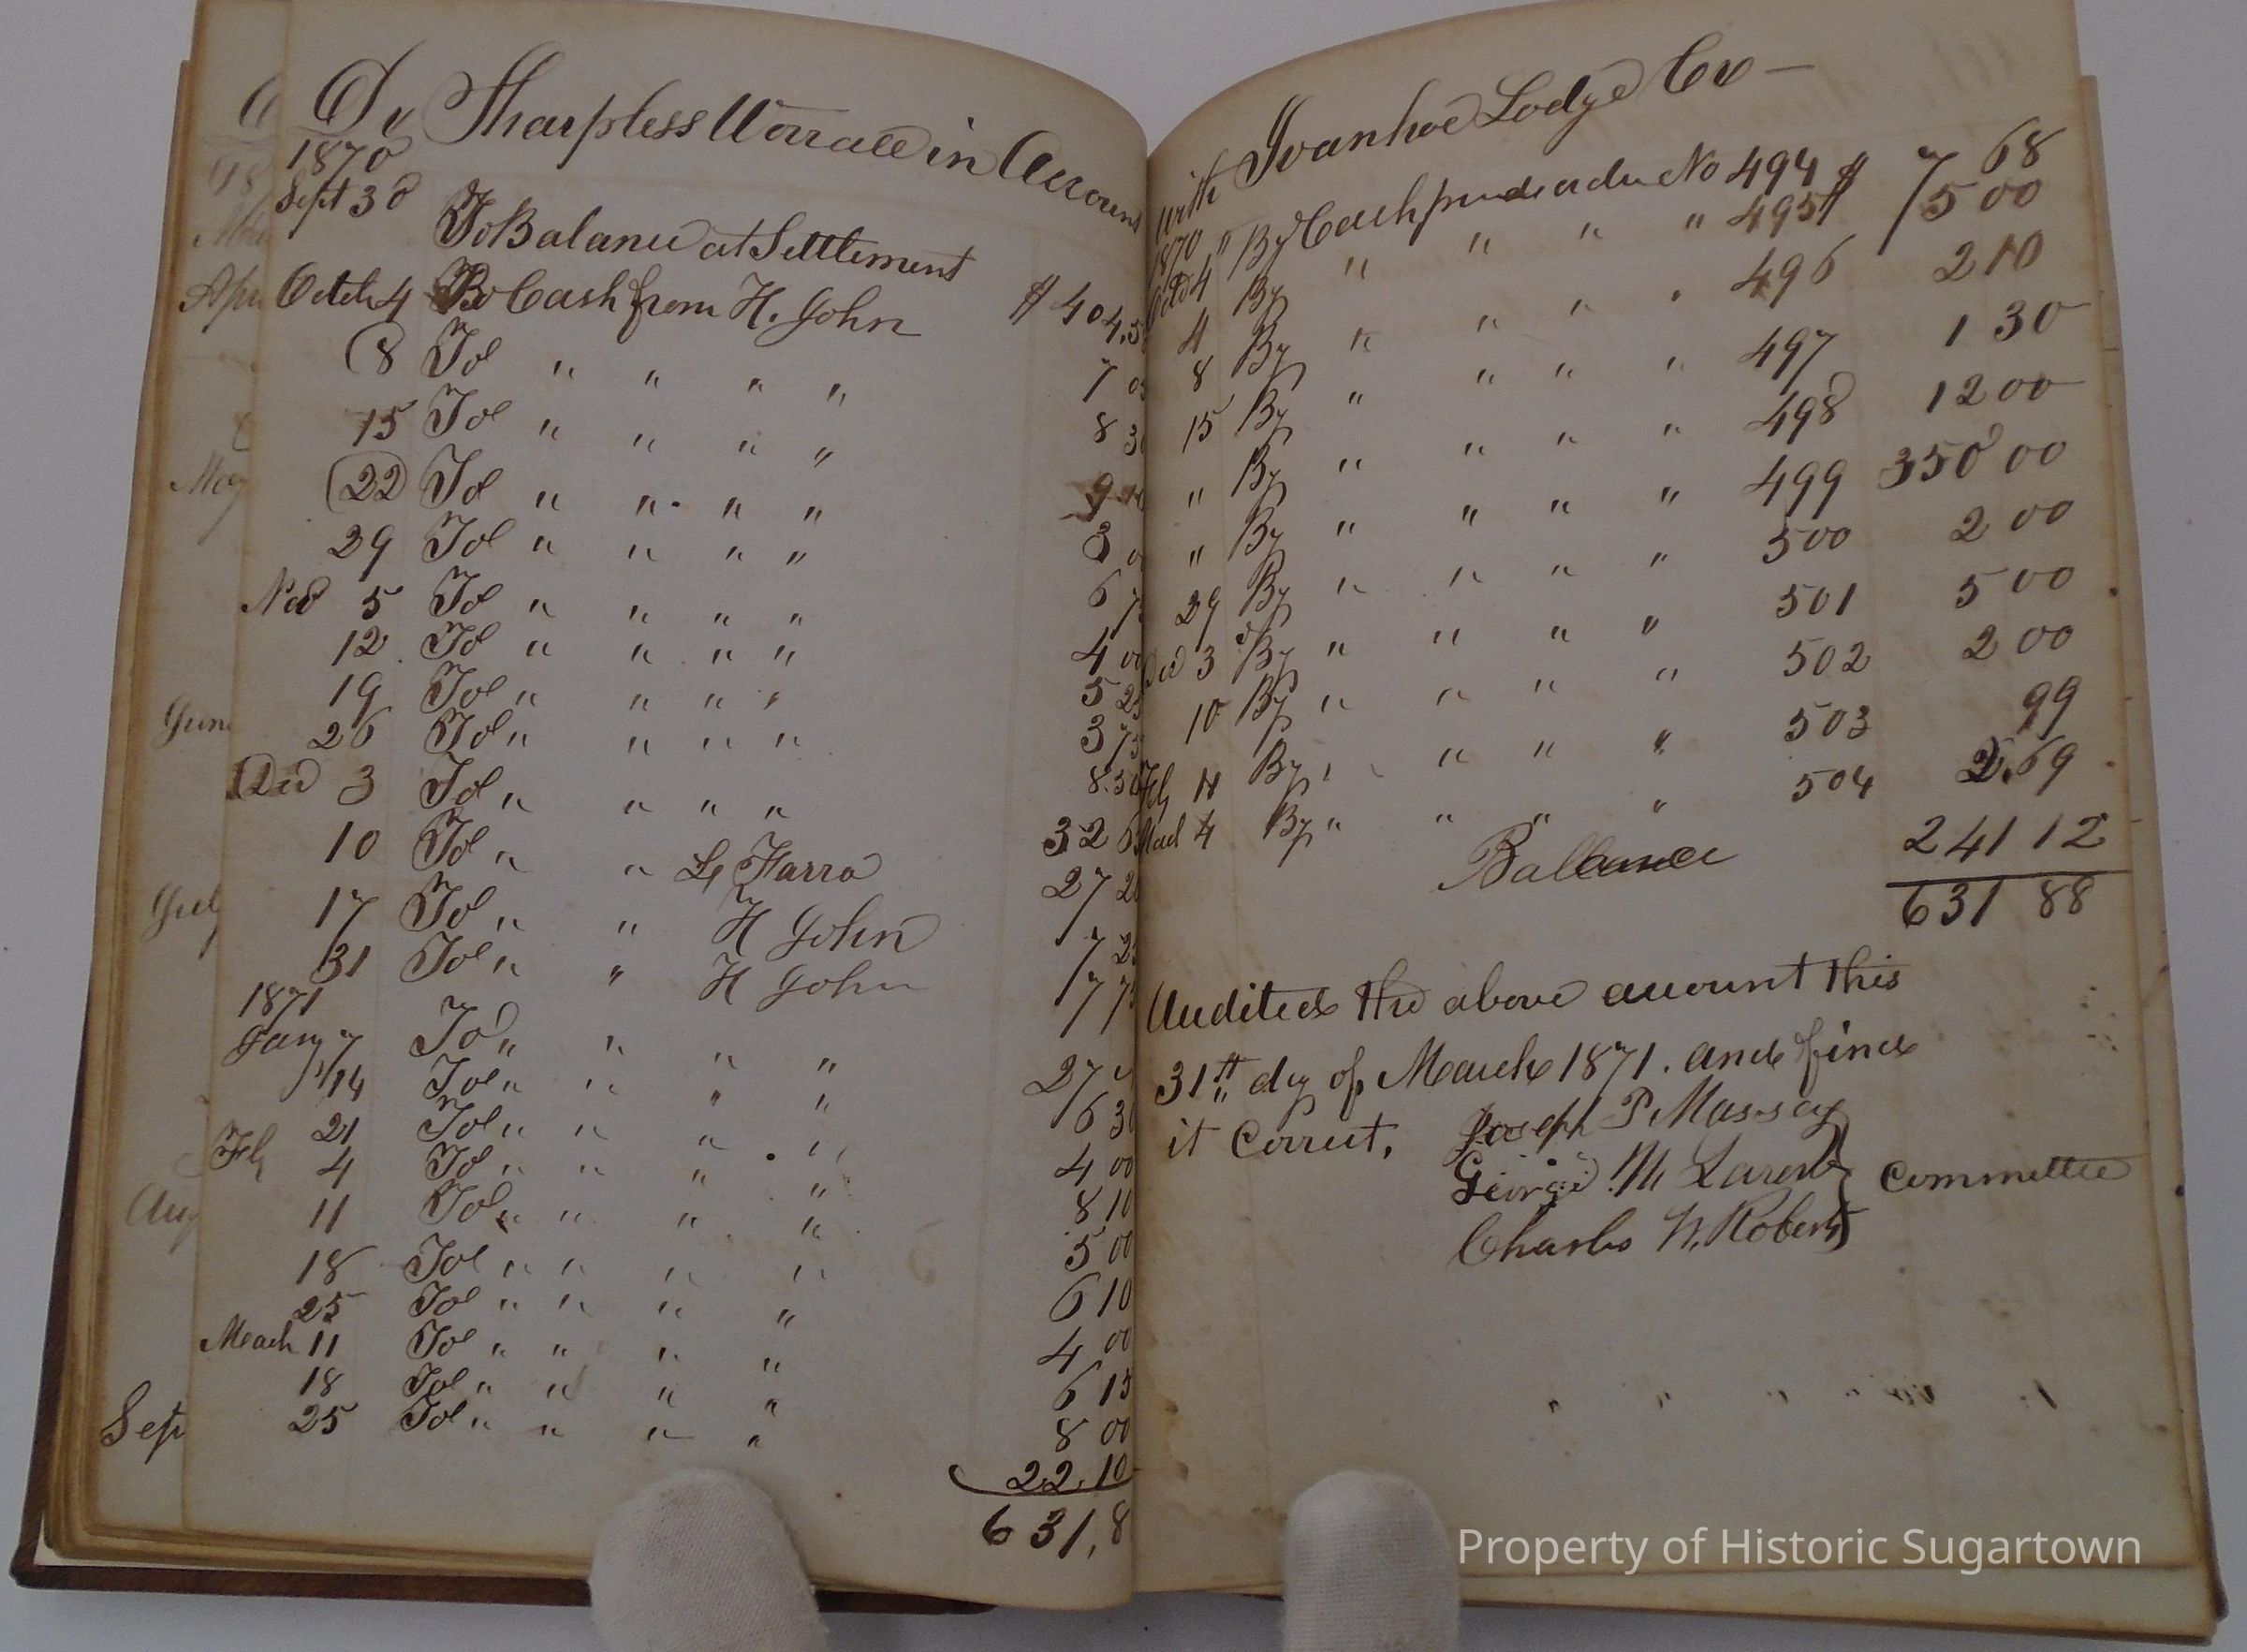 Dr Sharpless Worrall in Account
1870
Sept 30 To Balance at Settlement $404.5
Octob 4 To Cash from H. John 7 0
8 To " " " " 8 3
15 To " " " " 9
22 To " " " " 3 0
29 To " " " " 6 7
Nov 5 To " " " " 4 00
12 To " " " " 5 25
19 To " " " " 3 75
26 To " " " " 8.50
Dec 3 To " " " " 32 6
10 To " " L. Farra 27 20
17 To " " H John 7 25
31 To " " H John 17 75
1871
Jany 7 To " " " " 27
14 To " " " " 6 30
21 To " " " " 4 00
Feb 4 To " " " " 8 10
11 To " " " " 5 00
18 To " " " " 6 10
25 To " " " " 4 00
March 11 To " " " " 6 15
18 To " " " " 8 00
25 To " " " " 22.10
631,8
with Ivanhoe Lodge Cr
1870 " By Cash paid order No 494 $ 7 68
Octo 4 By " " " " 495 75 00
4 By " " " " 496 2 10
8 By " " " " 497 1 30
15 By " " " " 498 12 00
" By " " " " 499 350 00
" By " " " " 500 2 00
29 By " " " " 501 5 00
Dec 3 By " " " " 502 2 00
10 By " " " " 503 99
Feb 11 By " " " " 504 2.69
Mach 4 By " " " "
Ballance 241 12
631 88
Audited the above account this
31st day of March 1871. and find
it Correct. Joseph P Massey
George M Laren Committee
Charles W. Roberts
May
June
July
Aug
Sept
Property of Historic Sugartown